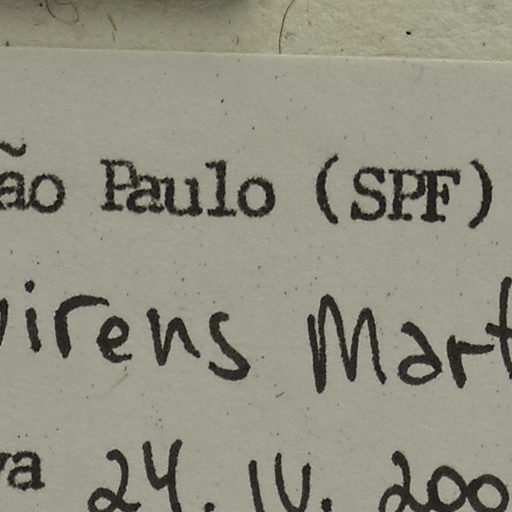 ão Paulo (SPF)
virens Mart
va 24. IV. 200